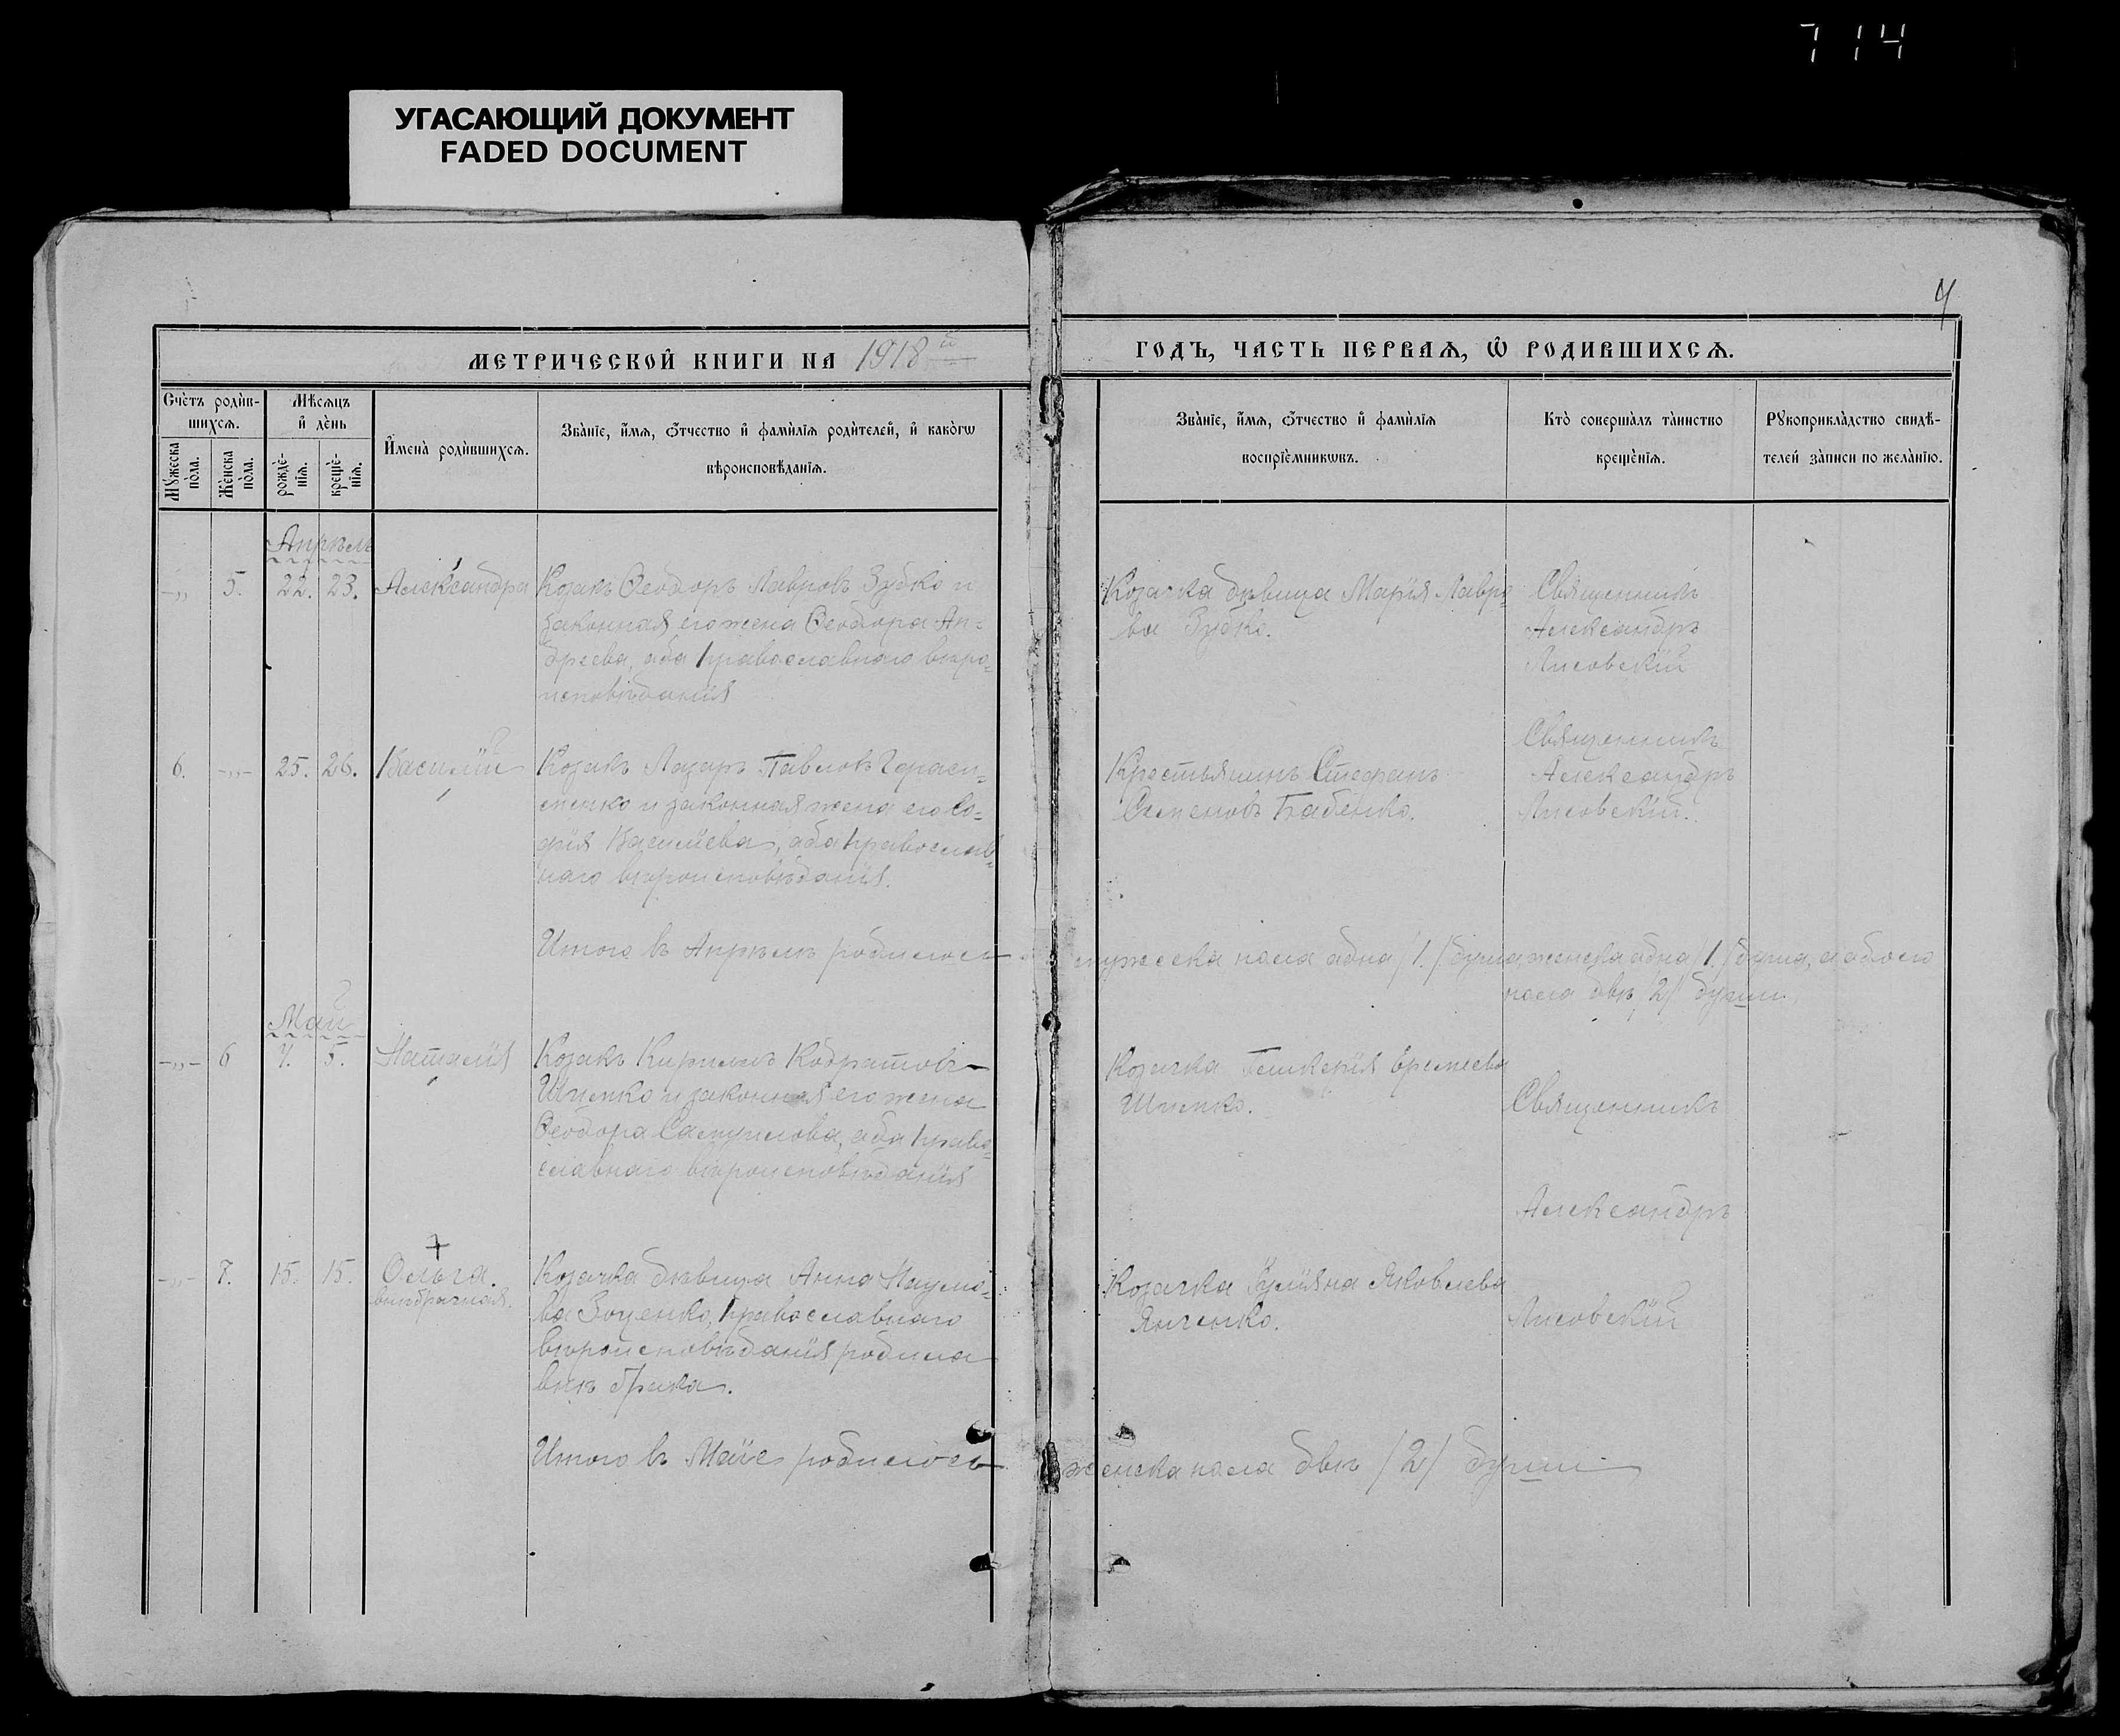 714
УГАСАЮЩИЙ ДОКУМЕНТ
FADED DOCUMENT
4
МЕТРИЧЕСКОЙ КНИГИ НА 1918й
ГОДЪ, ЧАСТЬ ПЕРВАѦ, Ѿ РОДИВШИХСѦ.
Счётъ родив-
шихсѧ.
Мꙋжеска пола.
Женска пола.
Мѣсѧцъ и день
рожденія.
крещенія.
Имена родившихсѧ.
Званіе, имѧ, ѿчество и фамилія родителей, и какогѡ
вѣроисповѣданіѧ.
Званіе, имѧ, ѿчество и фамиліѧ
воспріемникѡвъ.
Кто совершалъ таинство
крещеніѧ.
Рꙋкоприкладство свидѣ-
телей записи по желанію.
Апрѣль
-„- 5. 22. 23. Александра
Козакъ Ѳеодоръ Лавровъ Зубко и
законная его жена Ѳеодора Ан-
дреева, оба православнаго вѣро-
исповѣданія
Козачка дѣвица Марія Лавро-
ва Зубко.
Священникъ
Александръ
Лисовскій
6. -„- 25. 26. Василій
Козакъ Лазарь Павловъ Гераси-
менко и законная жена его Со-
фія Васильева, оба православ-
наго вѣроисповѣданія.
Крестьянинъ Стефанъ
Семеновъ Бабенко.
Священникъ
Александръ
Лисовскій.
Итого въ Апрѣлѣ родилось мужеска пола одна /1./ душа, женска одна /1./ душа, а обоего
пола двѣ /2/ души.
Май
-„- 6 4. 5. Наталія
Козакъ Кириллъ Кодратовъ
и законная его жена
Ѳеодора Самуилова, оба право-
славнаго вѣроисповѣданія
Козачка Еремеева
Священникъ
Александръ
Лисовскій
-„- 7. 15. 15. Ольга.
внѣбрачная.
Козачка дѣвица Анна Наумо-
ва Зоценко, православнаго
вѣроисповѣданія родила
внѣ брака.
Козачка Іуліяна Яковлева
Янченко.
Итого въ Маѣ родилось женска пола двѣ /2/ души